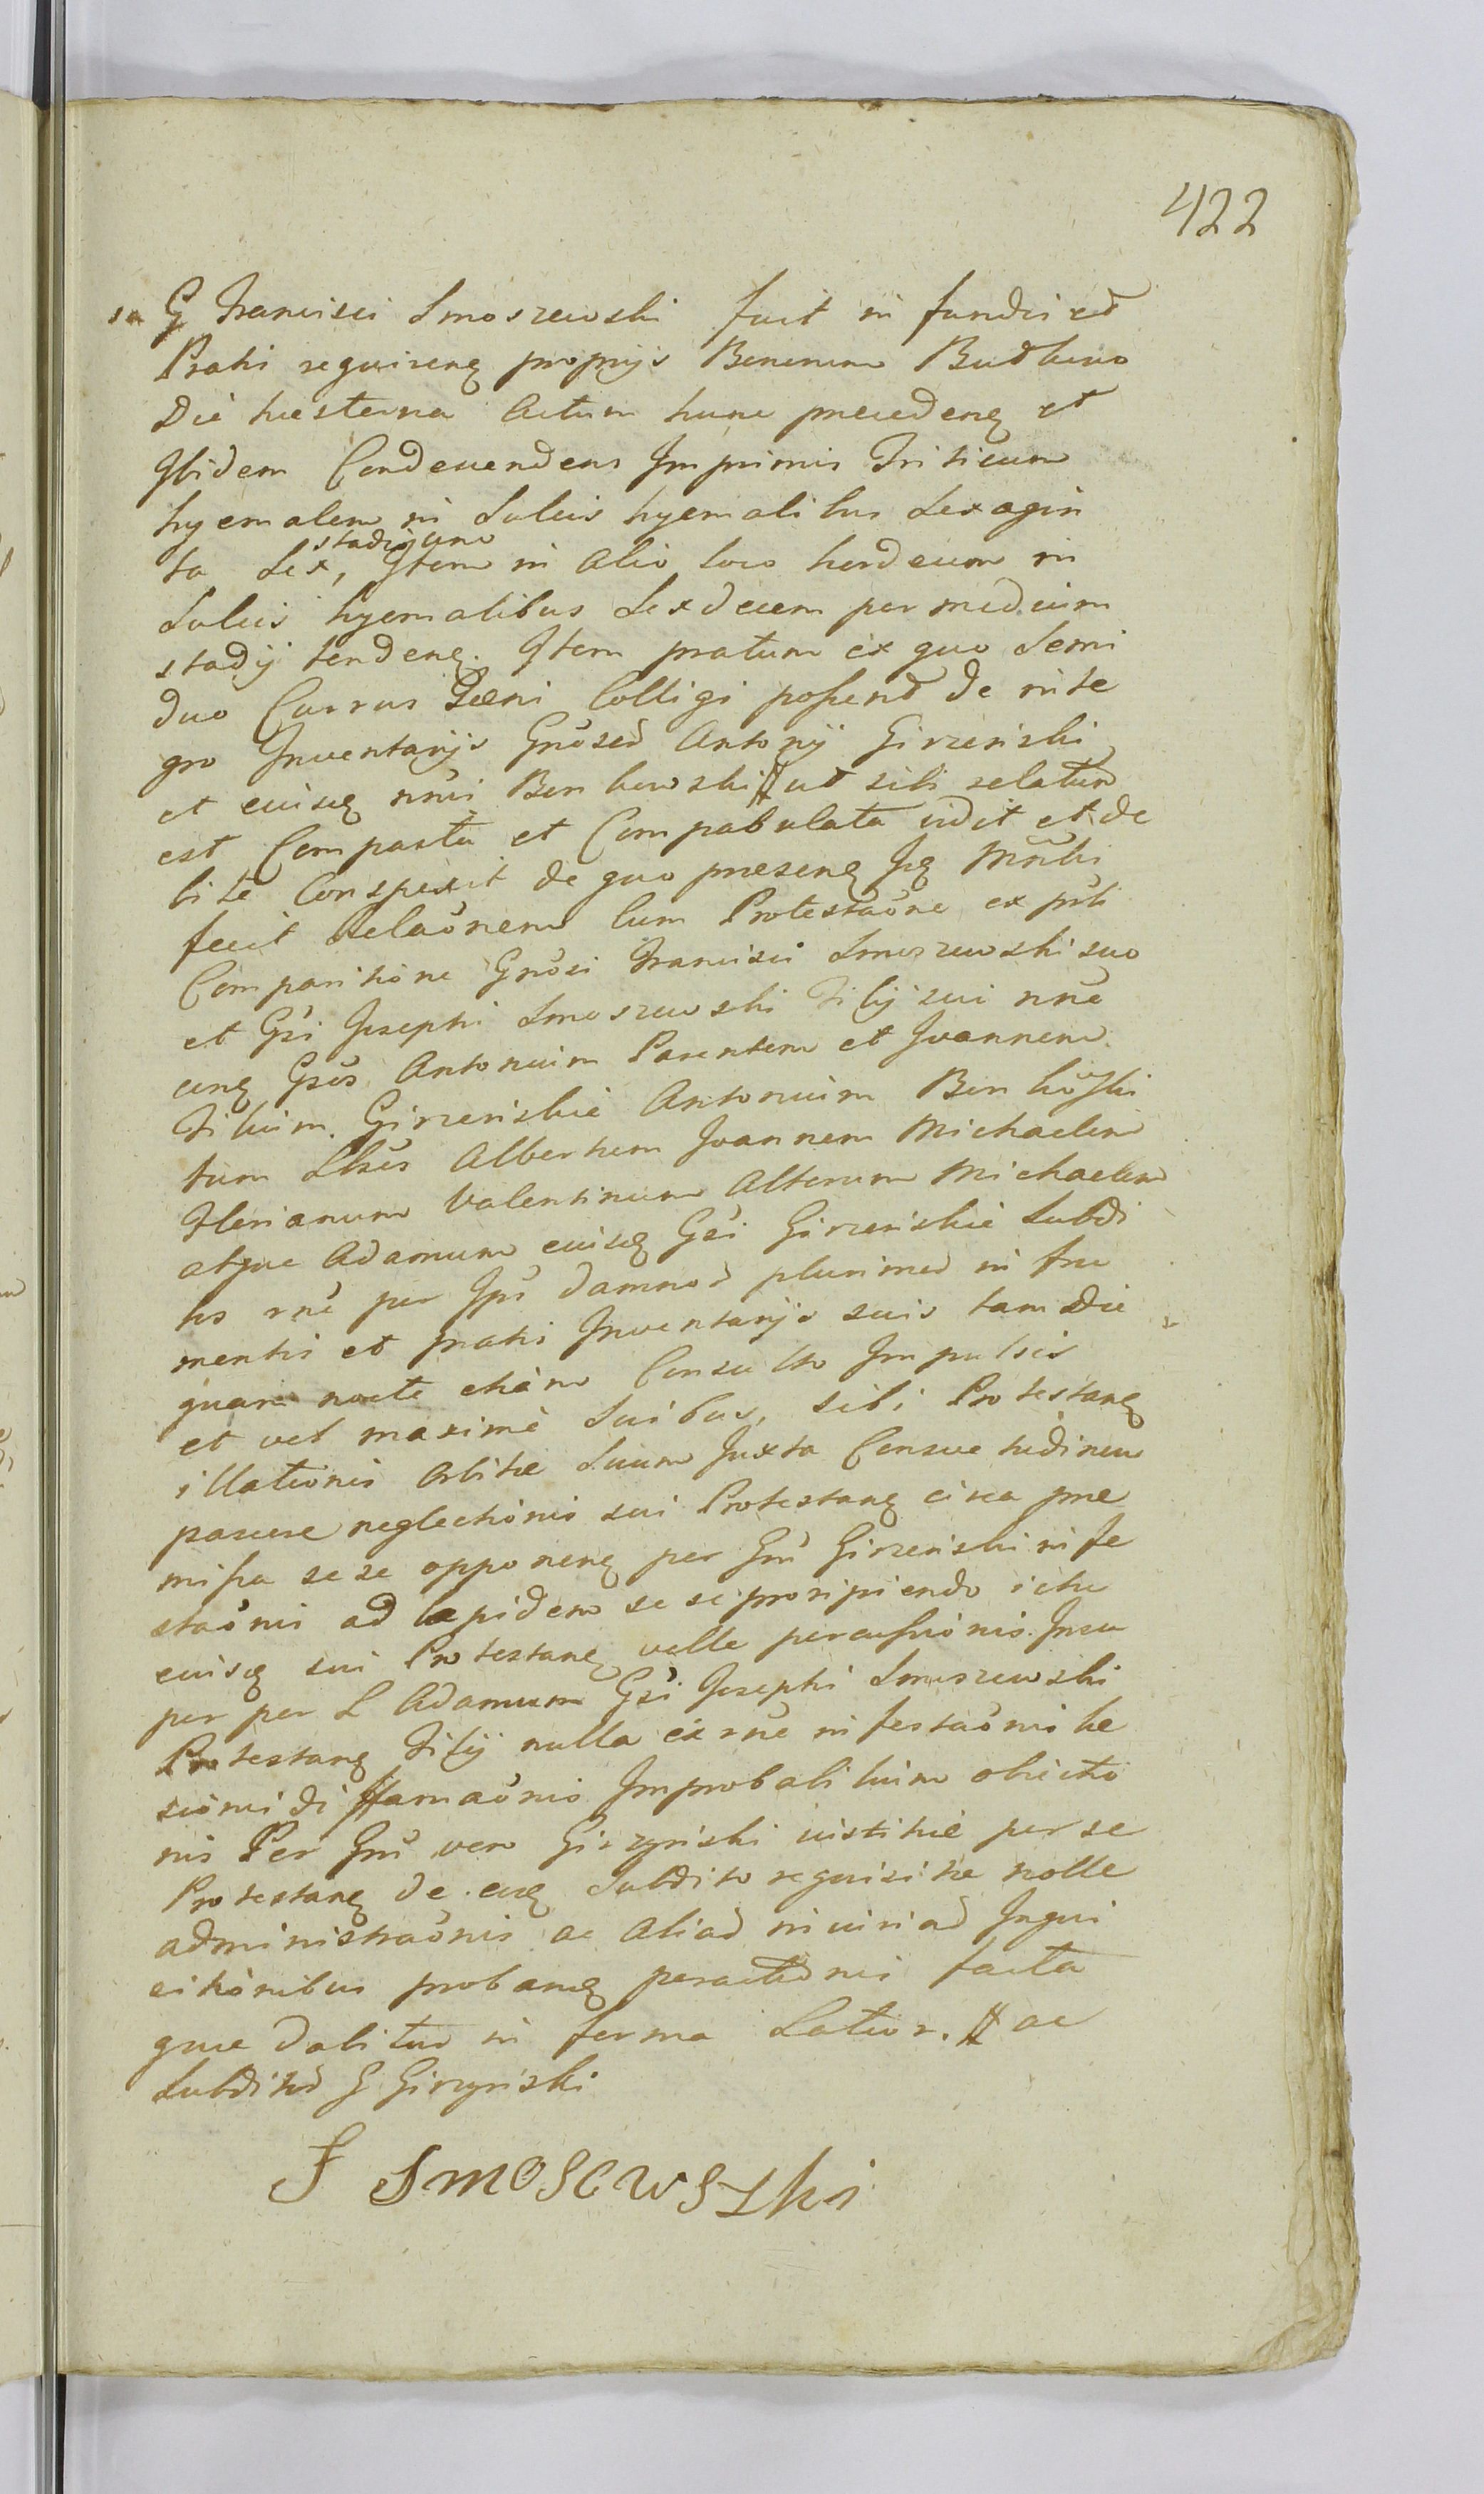 422
G Francisci Smoszewski fuit in fundi et
Prati requirenę proprijs Bonorum Budkowo
Die hesterna Actum hunc precedenę et
Ibidem Condescendens Imprimis Triticum
hyemalem in Sulcis hyemalibus Sexagin
stadij unu
ta Sex, Item in alio loco hordeum in
Sulcis hyemalibus Sexdecem per medium
stadij tendenę. Item pratum ex quo Semi
duo Currus Foeni Colligi possent de inte
gro Inventarijs Gnosed Antonij Girzeński
et eiusę nmi Benkowski # ut sibi relatum
est Compasta et Compabulata vidit et de
bite Conspexit de quo presenę Iꝗ Mnbi
fecit Relaonem Cum Protestaone ex pnti
Comparitione Gnosi Francisci Smoszewski suo
et Gsi Josephi Smoszewski Filij sui nne
cunę Gsos Antonium Parentem et Joannem
Filium Girzenskie Antonium Benkowski
tum Lbses Albertum Joannem Michaelem
Florianum Valentinum Alterum Michaelem
atque Adamum eiusę Gsi Girzenskie Subdi
tos rne per Ips damnor plurimor in fru
mentis et pratis Inventarijs suis tam Die
quam nocte etiam Consulto Impulsis
et vel maxime Suibus, sibi Protestanę
illationis Arbitre Suum Juxta Consuetudinem
pascere neglectionis sui Protestanę circa pre
missa sese opponenę per Gnu Girzenski infe
staonis ad lapidem se se proripiendo ictu
eiusę sui Protestanę velle percussionis. Insu
per per L Adamum Gsi Josephi Smoszewski
Protestanę Filij nulla ex rne infestaonis lae
sionis diffamaonis Improbalitium obiectio
nis Per Gnu vero Girzynski iustitie per se
Protestanę de euę Subdito requisitae nolle
administraonis ac aliad iniuriad Inqui
sitionibus probanę peractionis facta
que dabitur in forma Latior. # ac
Subditod G Girzynski
F SmoSewSzki